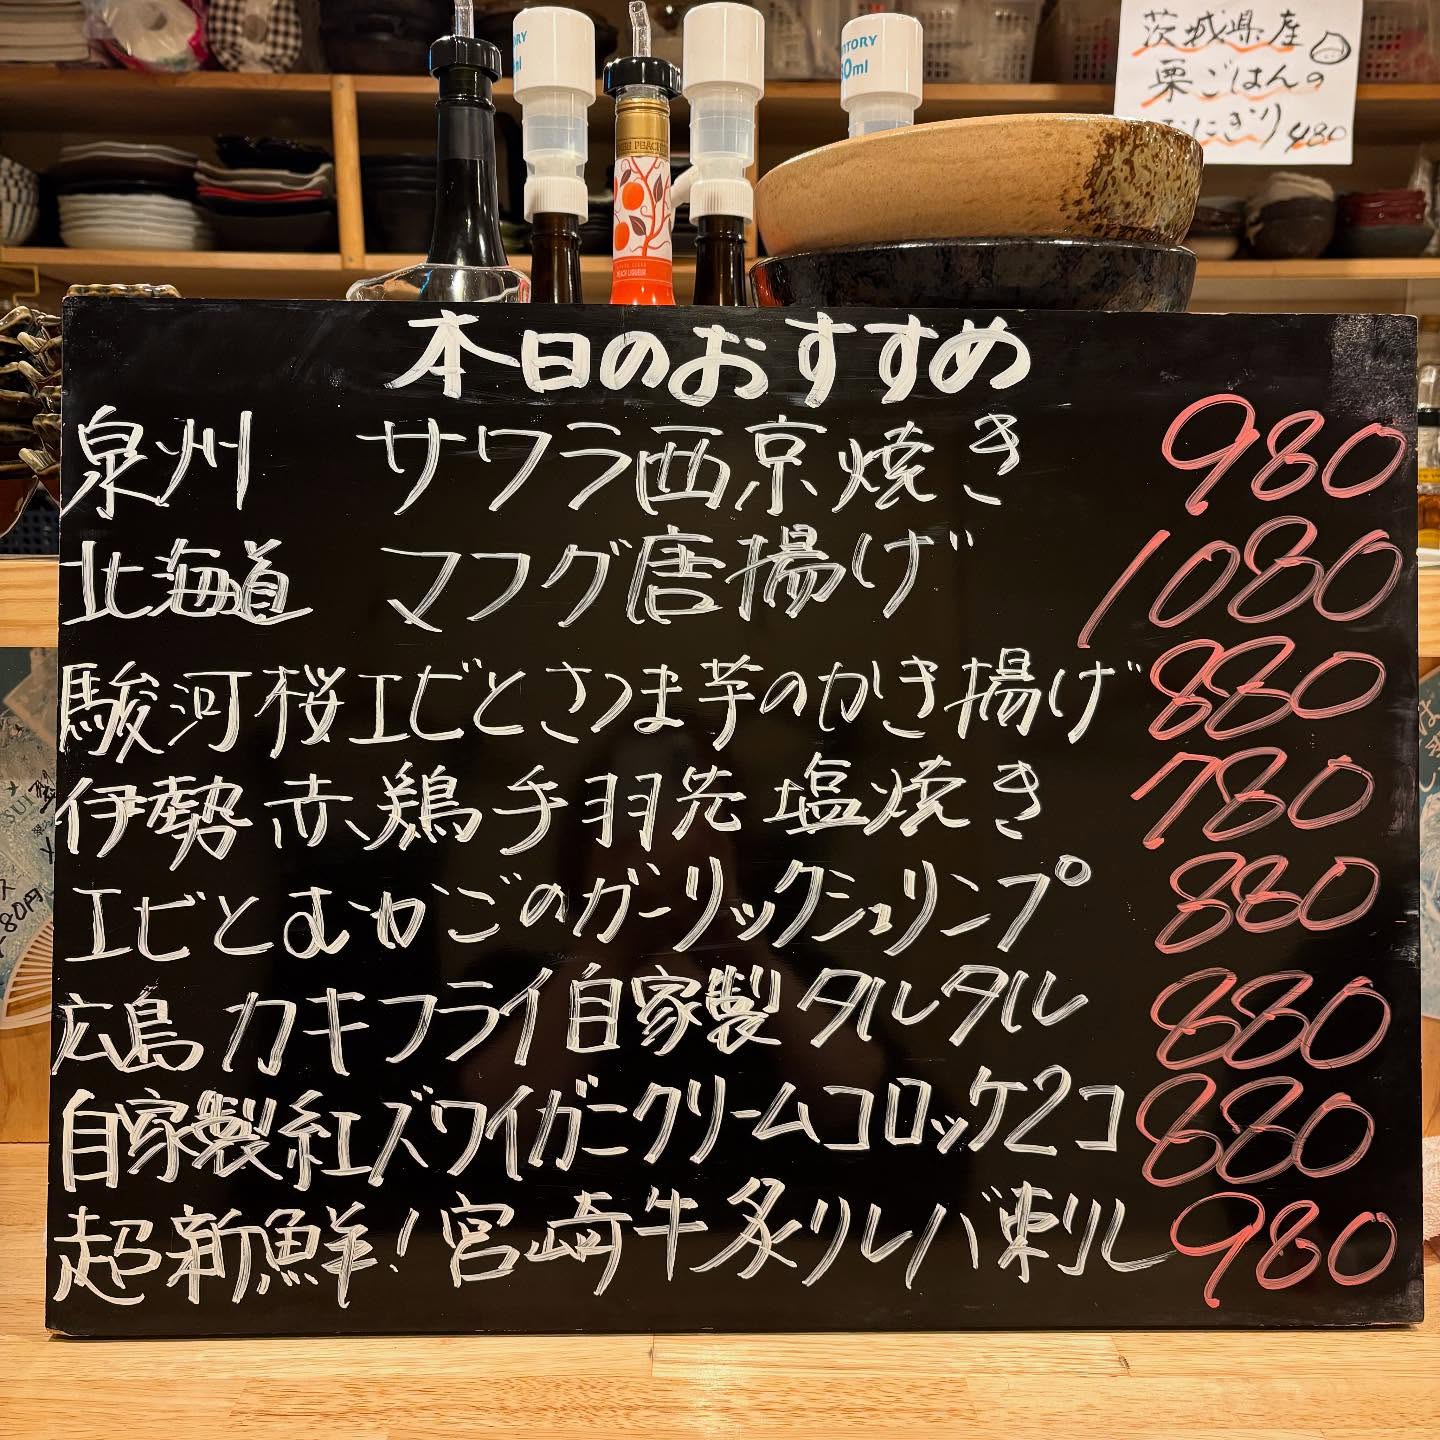 茨城県産
栗ごはんの
おにぎり 480
本日のおすすめ
泉州 サワラ西京焼き 980
北海道 マフグ唐揚げ 1080
駿河桜エビとさつま芋のかき揚げ 880
伊勢赤鶏手羽先塩焼き 780
エビとむかごのガーリックシュリンプ 880
広島カキフライ自家製タルタル 880
自家製紅ズワイガニクリームコロッケ2コ 880
超新鮮!宮崎牛炙りレバ刺し 980
PEACH LIQUEUR